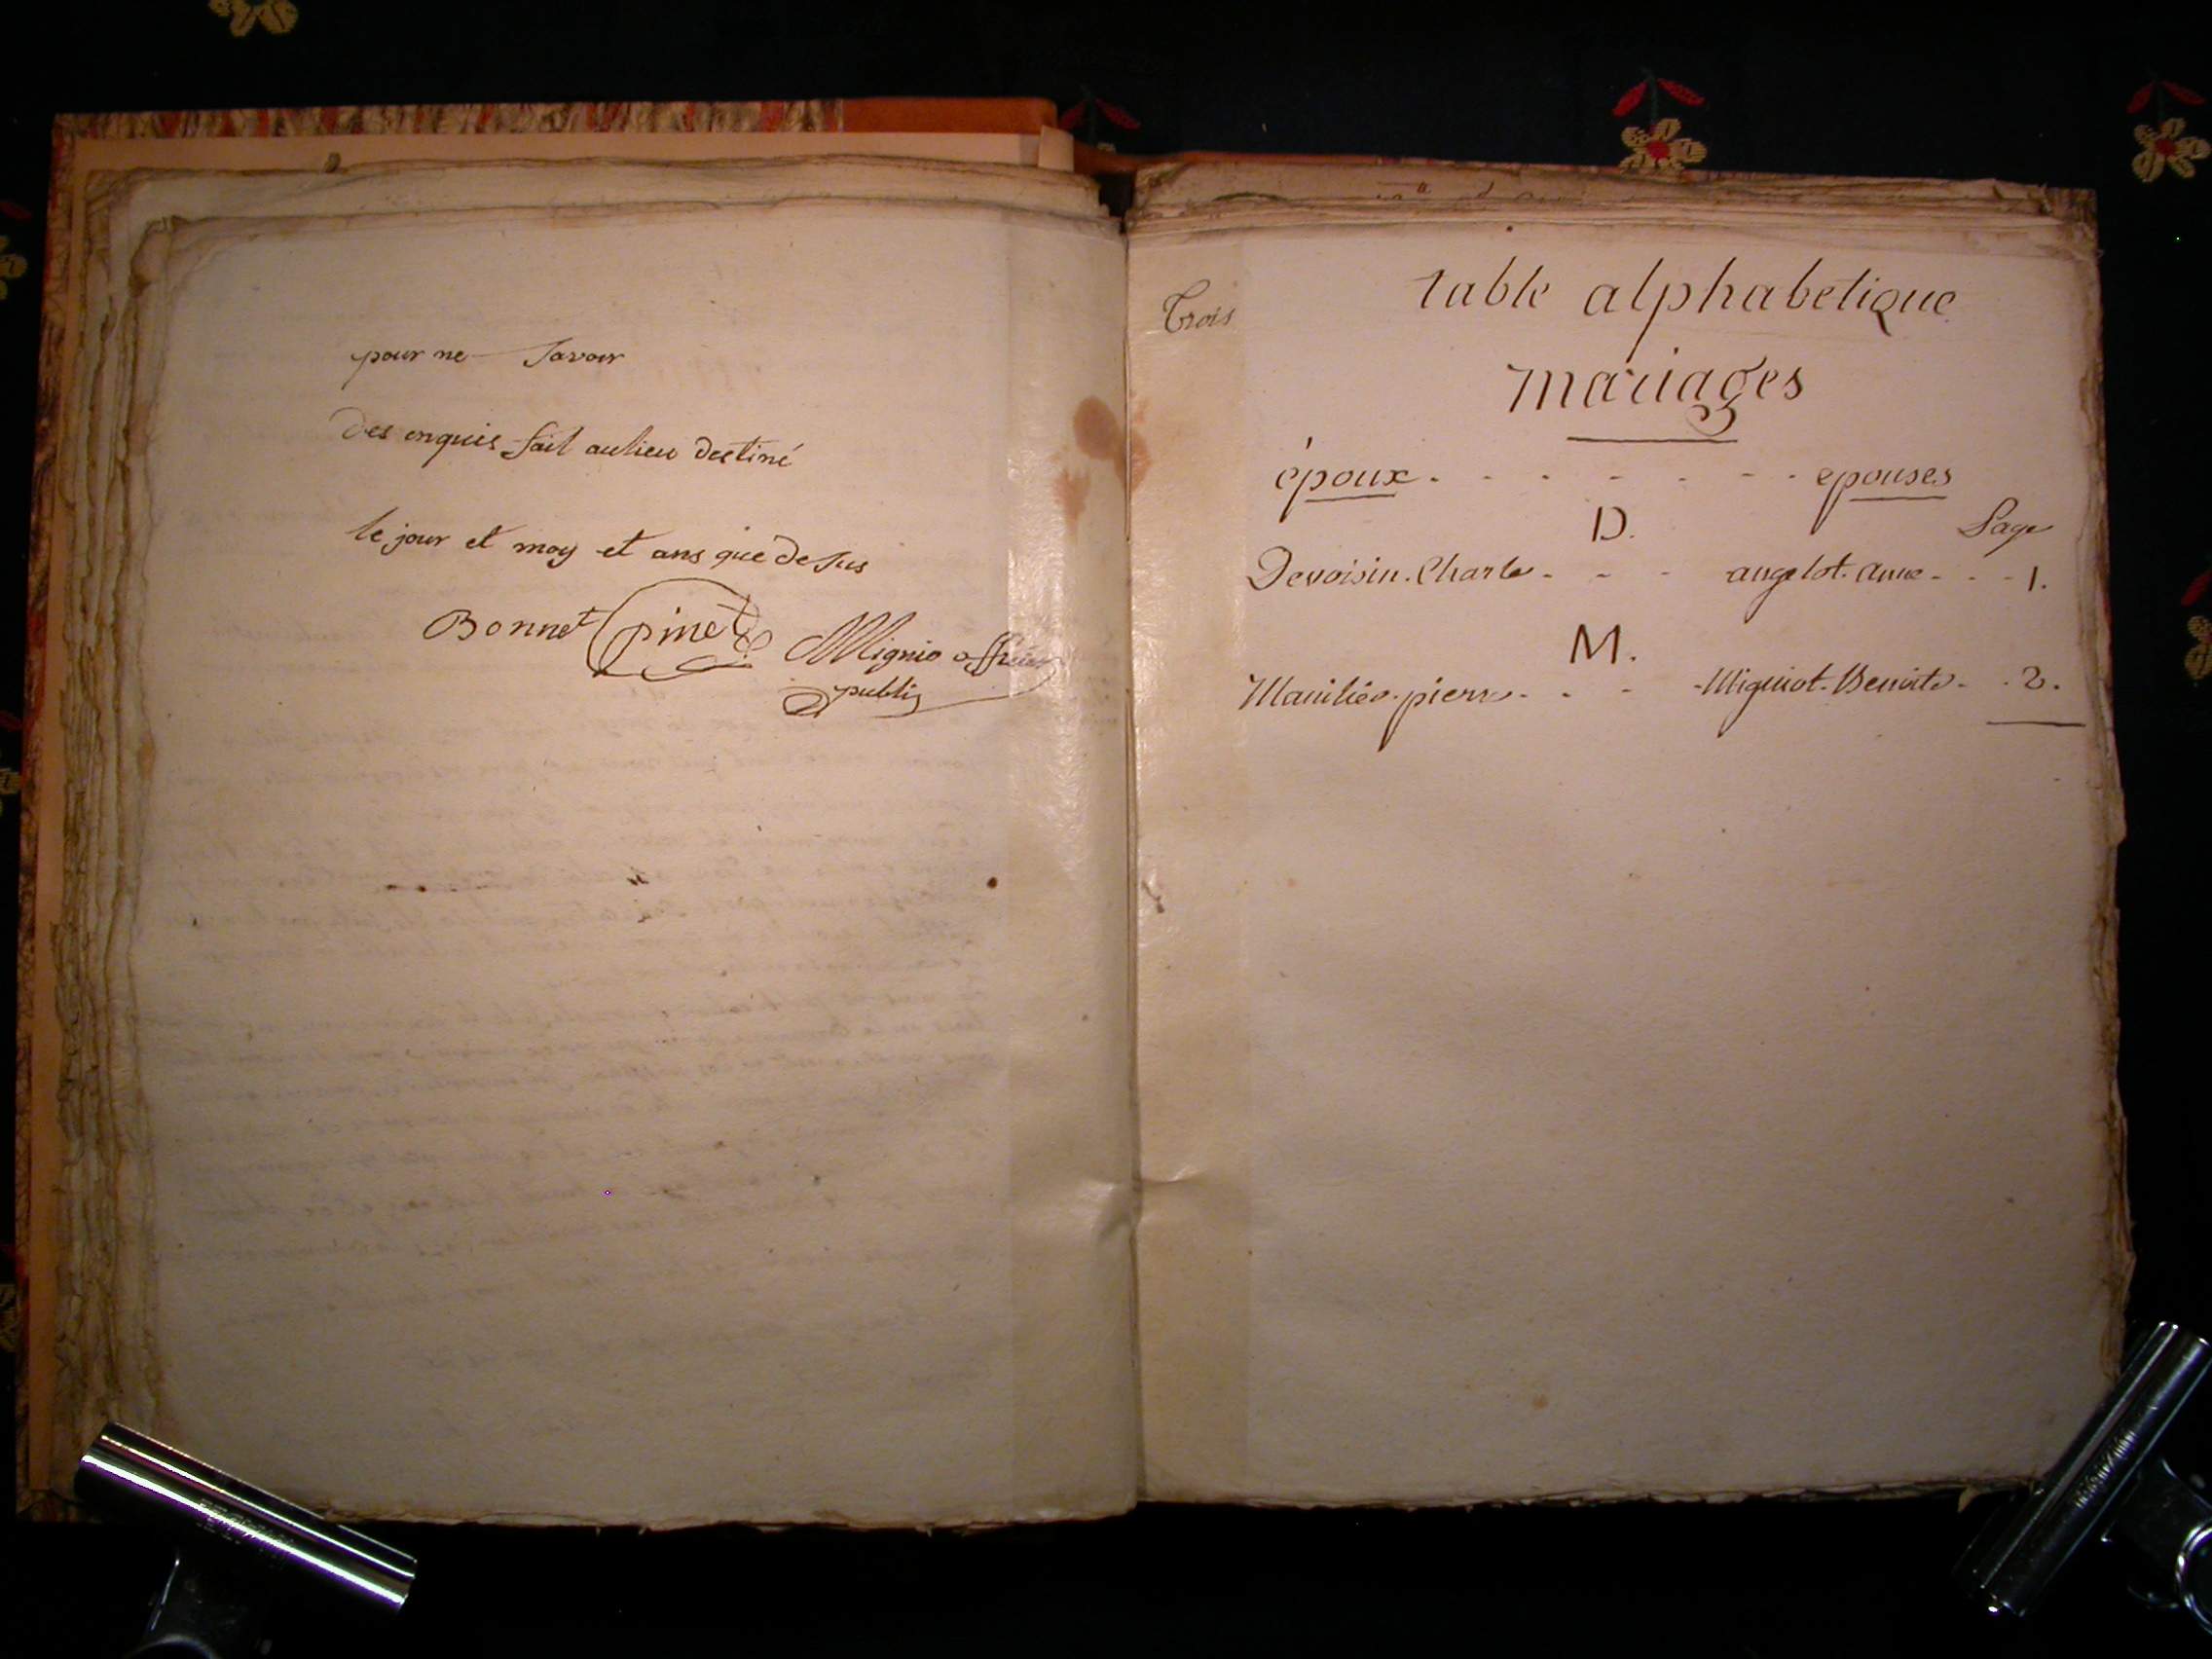 pour ne Savoir
des enquis fait au lieu destiné
le jour et moy et ans que de sus
Bonnet pinet Mignio officier
public
Trois
table alphabetique
mariages
époux. - - - - - - - epouses
D.
Page
Devoisin. Charle - - - angelot. anne - - - 1.
M.
pierre - - - Migniot. Benoite - - 2.